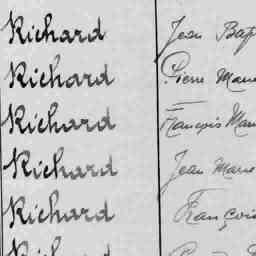 Richard Jean Bap
Richard Pierre Marie
Richard François Mar
Richard Jean Marie
Richard François
Richard